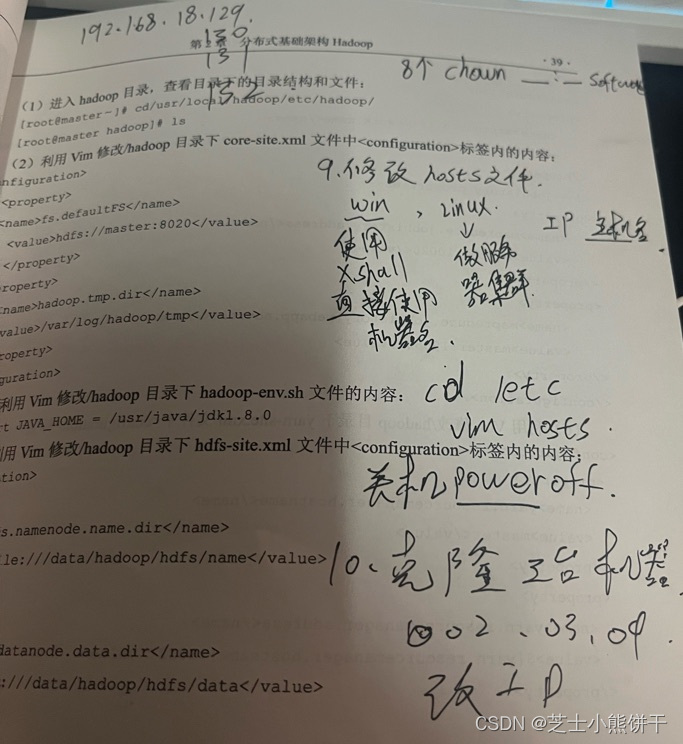 192.168.18.129.
130
131
132
分布式基础架构 Hadoop
·39·
8个 chown — : — Software
(1) 进入 hadoop 目录，查看目录下的目录结构和文件：
[root@master ~]# cd/usr/local/hadoop/etc/hadoop/
[root@master hadoop]# ls
(2) 利用 Vim 修改/hadoop 目录下 core-site.xml 文件中<configuration>标签内的内容：
nfiguration>
<property>
<name>fs.defaultFS</name>
<value>hdfs://master:8020</value>
</property>
roperty>
name>hadoop.tmp.dir</name>
value>/var/log/hadoop/tmp</value>
roperty>
guration>
9.修改 hosts文件.
win , Linux.
IP 主机名.
使用
Xshall
直接使用
机器名.
做服务
器集群.
利用 Vim 修改/hadoop 目录下 hadoop-env.sh 文件的内容：
t JAVA_HOME = /usr/java/jdk1.8.0
cd /etc
vim hosts.
用 Vim 修改/hadoop 目录下 hdfs-site.xml 文件中<configuration>标签内的内容：
tion>
关机 poweroff.
s.namenode.name.dir</name>
le:///data/hadoop/hdfs/name</value>
10、克隆 3台 机器
002、03、04.
改 IP
datanode.data.dir</name>
:///data/hadoop/hdfs/data</value>
CSDN @芝士小熊饼干